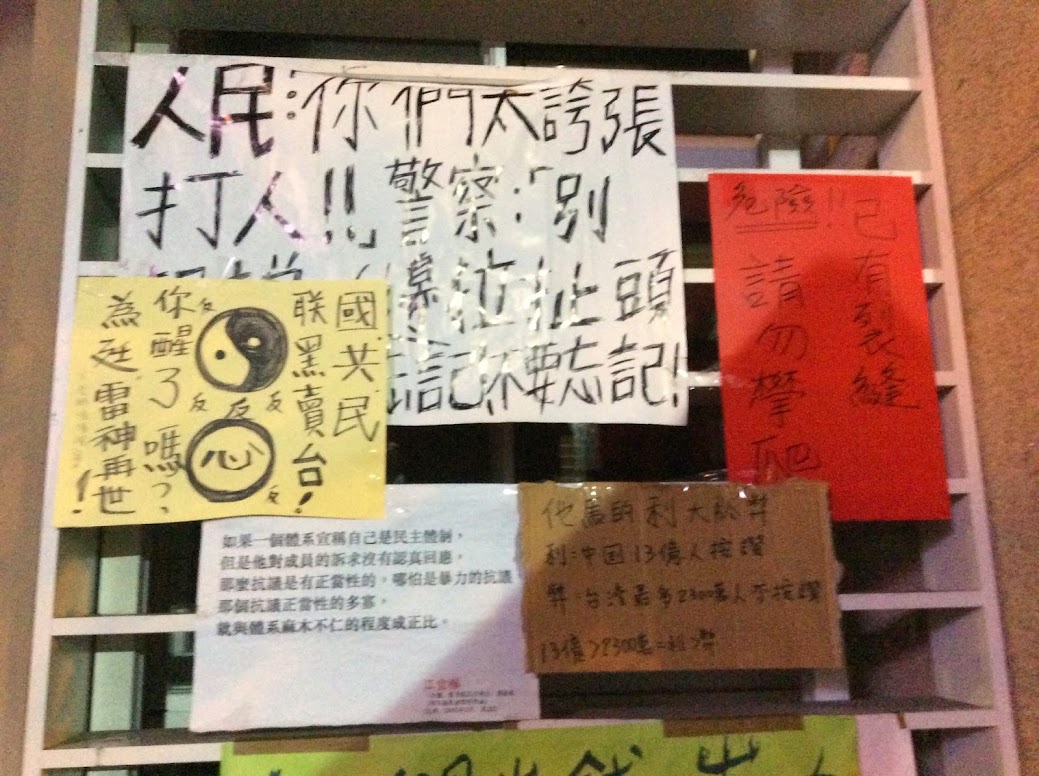 人民:你們太誇張
打人!!」警察:「別
拉扯頭
忘記!不要忘記!
危險!! 已有裂縫
請勿攀爬
國共民
联黑賣台!
反
反反反
反
心
你醒了嗎?
為廷雷神再世!
如果一個體系宣稱自己是民主體制,
但是他對成員的訴求沒有認真回應,
那麼抗議是有正當性的。哪怕是暴力的抗議
那個抗議正當性的多寡,
就與體系麻木不仁的程度成正比。
江宜樺
他馬的利大於弊
利:中国13億人按讚
弊:台湾最多2300萬人不按讚
13億>2300萬=利>弊